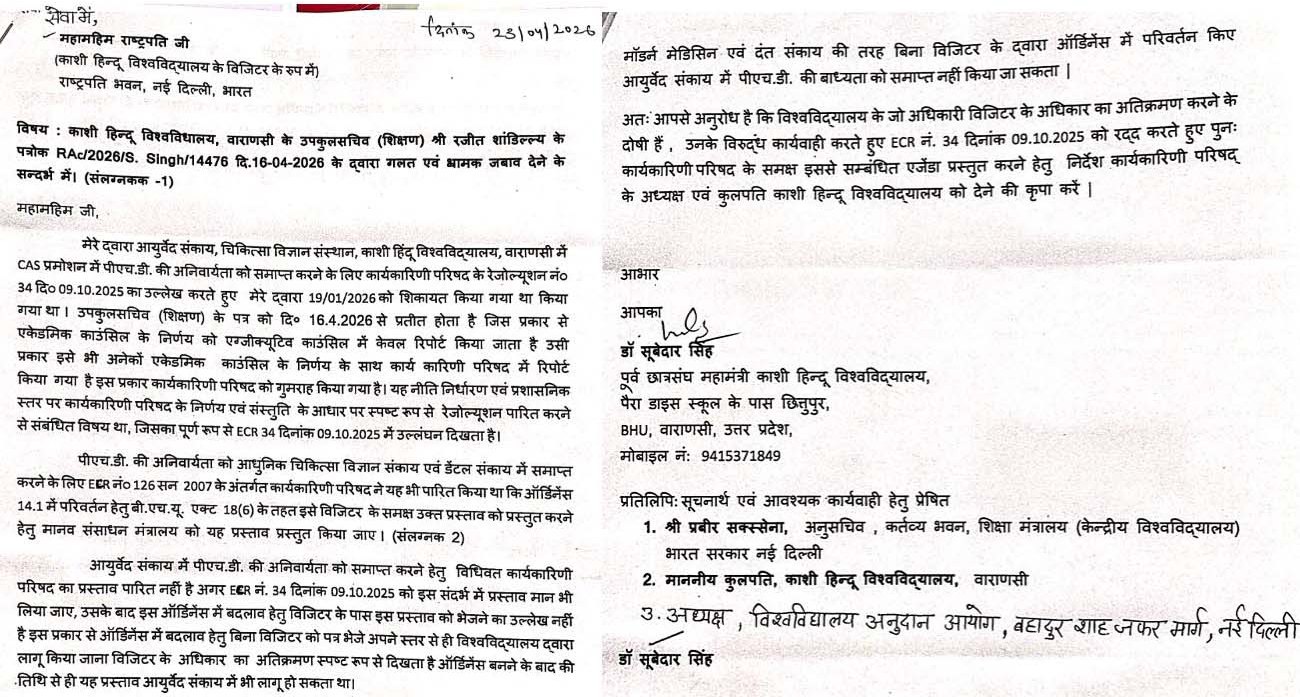 सेवा में,
दिनांक 23/04/2026
महामहिम राष्ट्रपति जी
(काशी हिन्दू विश्वविद्यालय के विजिटर के रुप में)
राष्ट्रपति भवन, नई दिल्ली, भारत
विषय : काशी हिन्दू विश्वविधालय, वाराणसी के उपकुलसचिव (शिक्षण) श्री रजीत शांडिल्य के
पत्रोक RAc/2026/S. Singh/14476 दि.16-04-2026 के द्वारा गलत एवं भ्रामक जबाव देने के
सन्दर्भ में। (संलग्नकक -1)
महामहिम जी,
मेरे द्वारा आयुर्वेद संकाय, चिकित्सा विज्ञान संस्थान, काशी हिंदू विश्वविद्यालय, वाराणसी में
CAS प्रमोशन में पीएच.डी. की अनिवार्यता को समाप्त करने के लिए कार्यकारिणी परिषद के रेजोल्यूशन नं०
34 दि० 09.10.2025 का उल्लेख करते हुए मेरे द्वारा 19/01/2026 को शिकायत किया गया था किया
गया था। उपकुलसचिव (शिक्षण) के पत्र को दि० 16.4.2026 से प्रतीत होता है जिस प्रकार से
एकेडमिक काउंसिल के निर्णय को एग्जीक्यूटिव काउंसिल में केवल रिपोर्ट किया जाता है उसी
प्रकार इसे भी अनेकों एकेडमिक काउंसिल के निर्णय के साथ कार्य कारिणी परिषद में रिपोर्ट
किया गया है इस प्रकार कार्यकारिणी परिषद को गुमराह किया गया है। यह नीति निर्धारण एवं प्रशासनिक
स्तर पर कार्यकारिणी परिषद के निर्णय एवं संस्तुति के आधार पर स्पष्ट रूप से रेजोल्यूशन पारित करने
से संबंधित विषय था, जिसका पूर्ण रूप से ECR 34 दिनांक 09.10.2025 में उल्लंघन दिखता है।
पीएच.डी. की अनिवार्यता को आधुनिक चिकित्सा विज्ञान संकाय एवं डेंटल संकाय में समाप्त
करने के लिए ECR नं० 126 सन 2007 के अंतर्गत कार्यकारिणी परिषद ने यह भी पारित किया था कि ऑर्डिनेंस
14.1 में परिवर्तन हेतु बी.एच.यू. एक्ट 18(6) के तहत इसे विजिटर के समक्ष उक्त प्रस्ताव को प्रस्तुत करने
हेतु मानव संसाधन मंत्रालय को यह प्रस्ताव प्रस्तुत किया जाए। (संलग्नक 2)
आयुर्वेद संकाय में पीएच.डी. की अनिवार्यता को समाप्त करने हेतु विधिवत कार्यकारिणी
परिषद का प्रस्ताव पारित नहीं है अगर ECR नं. 34 दिनांक 09.10.2025 को इस संदर्भ में प्रस्ताव मान भी
लिया जाए, उसके बाद इस ऑर्डिनेंस में बदलाव हेतु विजिटर के पास इस प्रस्ताव को भेजने का उल्लेख नहीं
है इस प्रकार से ऑर्डिनेंस में बदलाव हेतु बिना विजिटर को पत्र भेजे अपने स्तर से ही विश्वविद्यालय द्वारा
लागू किया जाना विजिटर के अधिकार का अतिक्रमण स्पष्ट रूप से दिखता है ऑर्डिनेंस बनने के बाद की
तिथि से ही यह प्रस्ताव आयुर्वेद संकाय में भी लागू हो सकता था।
मॉडर्न मेडिसिन एवं दंत संकाय की तरह बिना विजिटर के द्वारा ऑर्डिनेंस में परिवर्तन किए
आयुर्वेद संकाय में पीएच.डी. की बाध्यता को समाप्त नहीं किया जा सकता |
अतः आपसे अनुरोध है कि विश्वविद्यालय के जो अधिकारी विजिटर के अधिकार का अतिक्रमण करने के
दोषी हैं , उनके विरुद्ध कार्यवाही करते हुए ECR नं. 34 दिनांक 09.10.2025 को रद्द करते हुए पुनः
कार्यकारिणी परिषद के समक्ष इससे सम्बंधित एजेंडा प्रस्तुत करने हेतु निर्देश कार्यकारिणी परिषद्
के अध्यक्ष एवं कुलपति काशी हिन्दू विश्वविद्यालय को देने की कृपा करें |
आभार
आपका
डॉ सूबेदार सिंह
पूर्व छात्रसंघ महामंत्री काशी हिन्दू विश्वविद्यालय,
पैरा डाइस स्कूल के पास छित्तुपुर,
BHU, वाराणसी, उत्तर प्रदेश,
मोबाइल नं: 9415371849
प्रतिलिपि: सूचनार्थ एवं आवश्यक कार्यवाही हेतु प्रेषित
1. श्री प्रबीर सक्सेना, अनुसचिव , कर्तव्य भवन, शिक्षा मंत्रालय (केन्द्रीय विश्वविद्यालय)
भारत सरकार नई दिल्ली
2. माननीय कुलपति, काशी हिन्दू विश्वविद्यालय, वाराणसी
3. अध्यक्ष, विश्वविद्यालय अनुदान आयोग, बहादुर शाह जफर मार्ग, नई दिल्ली
डॉ सूबेदार सिंह